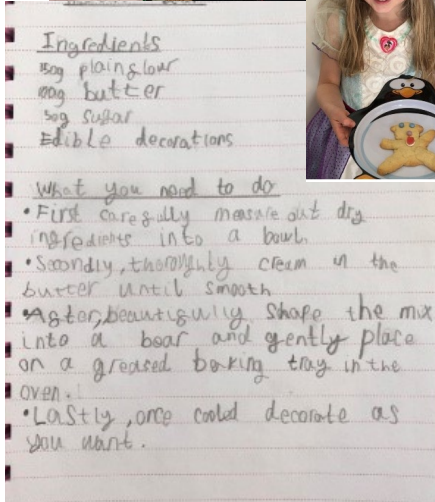 Ingredients
150g plain flour
100g butter
50g sugar
Edible decorations
What you need to do
• First carefully measure out dry
ingredients into a bowl.
• Secondly, thoroughly cream in the
butter until smooth
• After, beautifully shape the mix
into a bear and gently place
on a greased baking tray in the
oven.
• Lastly, once cooled decorate as
you want.